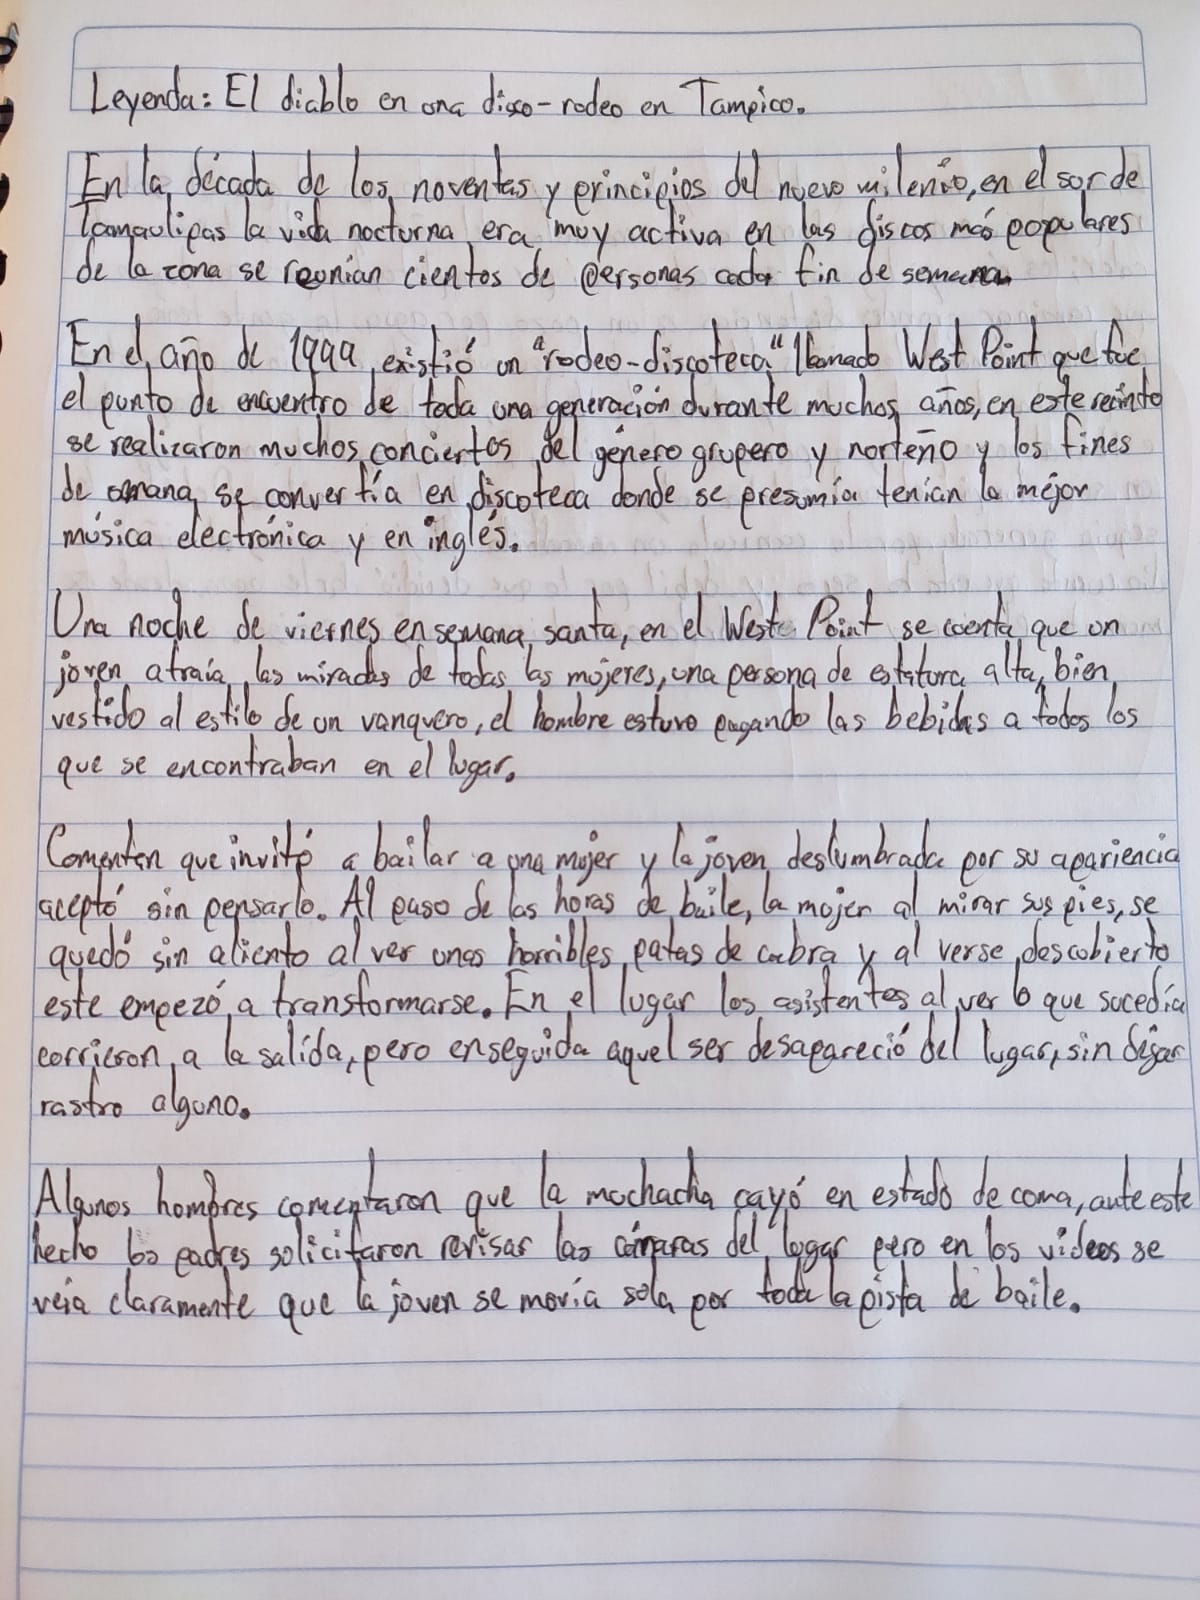 Leyenda: El diablo en una disco-rodeo en Tampico.
En la década de los noventas y principios del nuevo milenio, en el sur de
Tamaulipas la vida nocturna era muy activa en las discos más populares
de la zona se reunían cientos de personas cada fin de semana
En el año de 1999 existió un "rodeo-discoteca" llamado West Point que fue
el punto de encuentro de toda una generación durante muchos años, en este recinto
se realizaron muchos conciertos del género grupero y norteño y los fines
de semana se convertía en discoteca donde se presumía tenían la mejor
música electrónica y en inglés.
Una noche de viernes en semana santa, en el West Point se cuenta que un
joven atraía las miradas de todas las mujeres, una persona de estatura alta, bien
vestido al estilo de un vanquero, el hombre estuvo pagando las bebidas a todos los
que se encontraban en el lugar.
Comentan que invitó a bailar a una mujer y la joven deslumbrada por su apariencia
aceptó sin pensarlo. Al paso de las horas de baile, la mujer al mirar sus pies, se
quedó sin aliento al ver unas horribles patas de cabra y al verse descubierto
este empezó a transformarse. En el lugar los asistentes al ver lo que sucedía
corrieron a la salida, pero enseguida aquel ser desapareció del lugar, sin dejar
rastro alguno.
Algunos hombres comentaron que la muchacha cayó en estado de coma, ante este
hecho los padres solicitaron revisar las cámaras del lugar pero en los videos se
veía claramente que la joven se movía sola por toda la pista de baile.